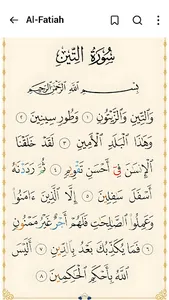 Al-Fatiah
سُورَةُ التِّينِ
بِسْمِ اللَّهِ الرَّحْمَٰنِ الرَّحِيمِ
وَالتِّينِ وَالزَّيْتُونِ ١ وَطُورِ سِينِينَ ٢
وَهَٰذَا الْبَلَدِ الْأَمِينِ ٣ لَقَدْ خَلَقْنَا
الْإِنسَٰنَ فِي أَحْسَنِ تَقْوِيمٍ ٤ ثُمَّ رَدَدْنَٰهُ
أَسْفَلَ سَٰفِلِينَ ٥ إِلَّا الَّذِينَ ءَامَنُوا
وَعَمِلُوا الصَّٰلِحَٰتِ فَلَهُمْ أَجْرٌ غَيْرُ مَمْنُونٍ
٦ فَمَا يُكَذِّبُكَ بَعْدُ بِالدِّينِ ٧ أَلَيْسَ
اللَّهُ بِأَحْكَمِ الْحَٰكِمِينَ ٨